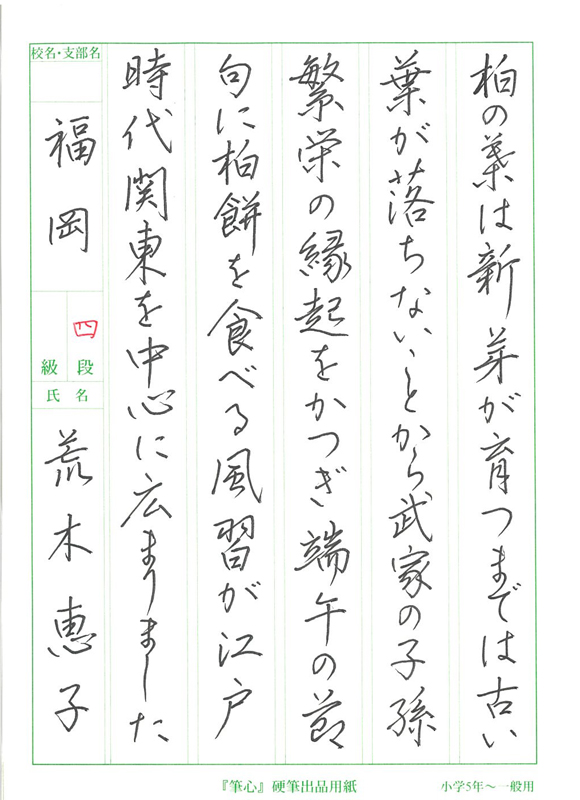 柏の葉は新芽が育つまでは古い
葉が落ちないことから武家の子孫
繁栄の縁起をかつぎ端午の節
句に柏餅を食べる風習が江戸
時代関東を中心に広まりました
校名・支部名
福岡
四
級 段
氏 名
荒木恵子
『筆心』硬筆出品用紙
小学5年～一般用